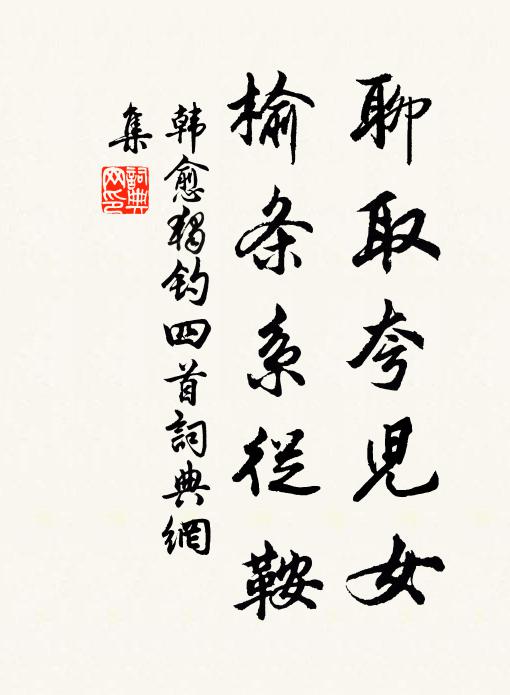 聊取夸兒女
榆条系從鞍
韩愈独钓四首詞典網
集
詞典
网印